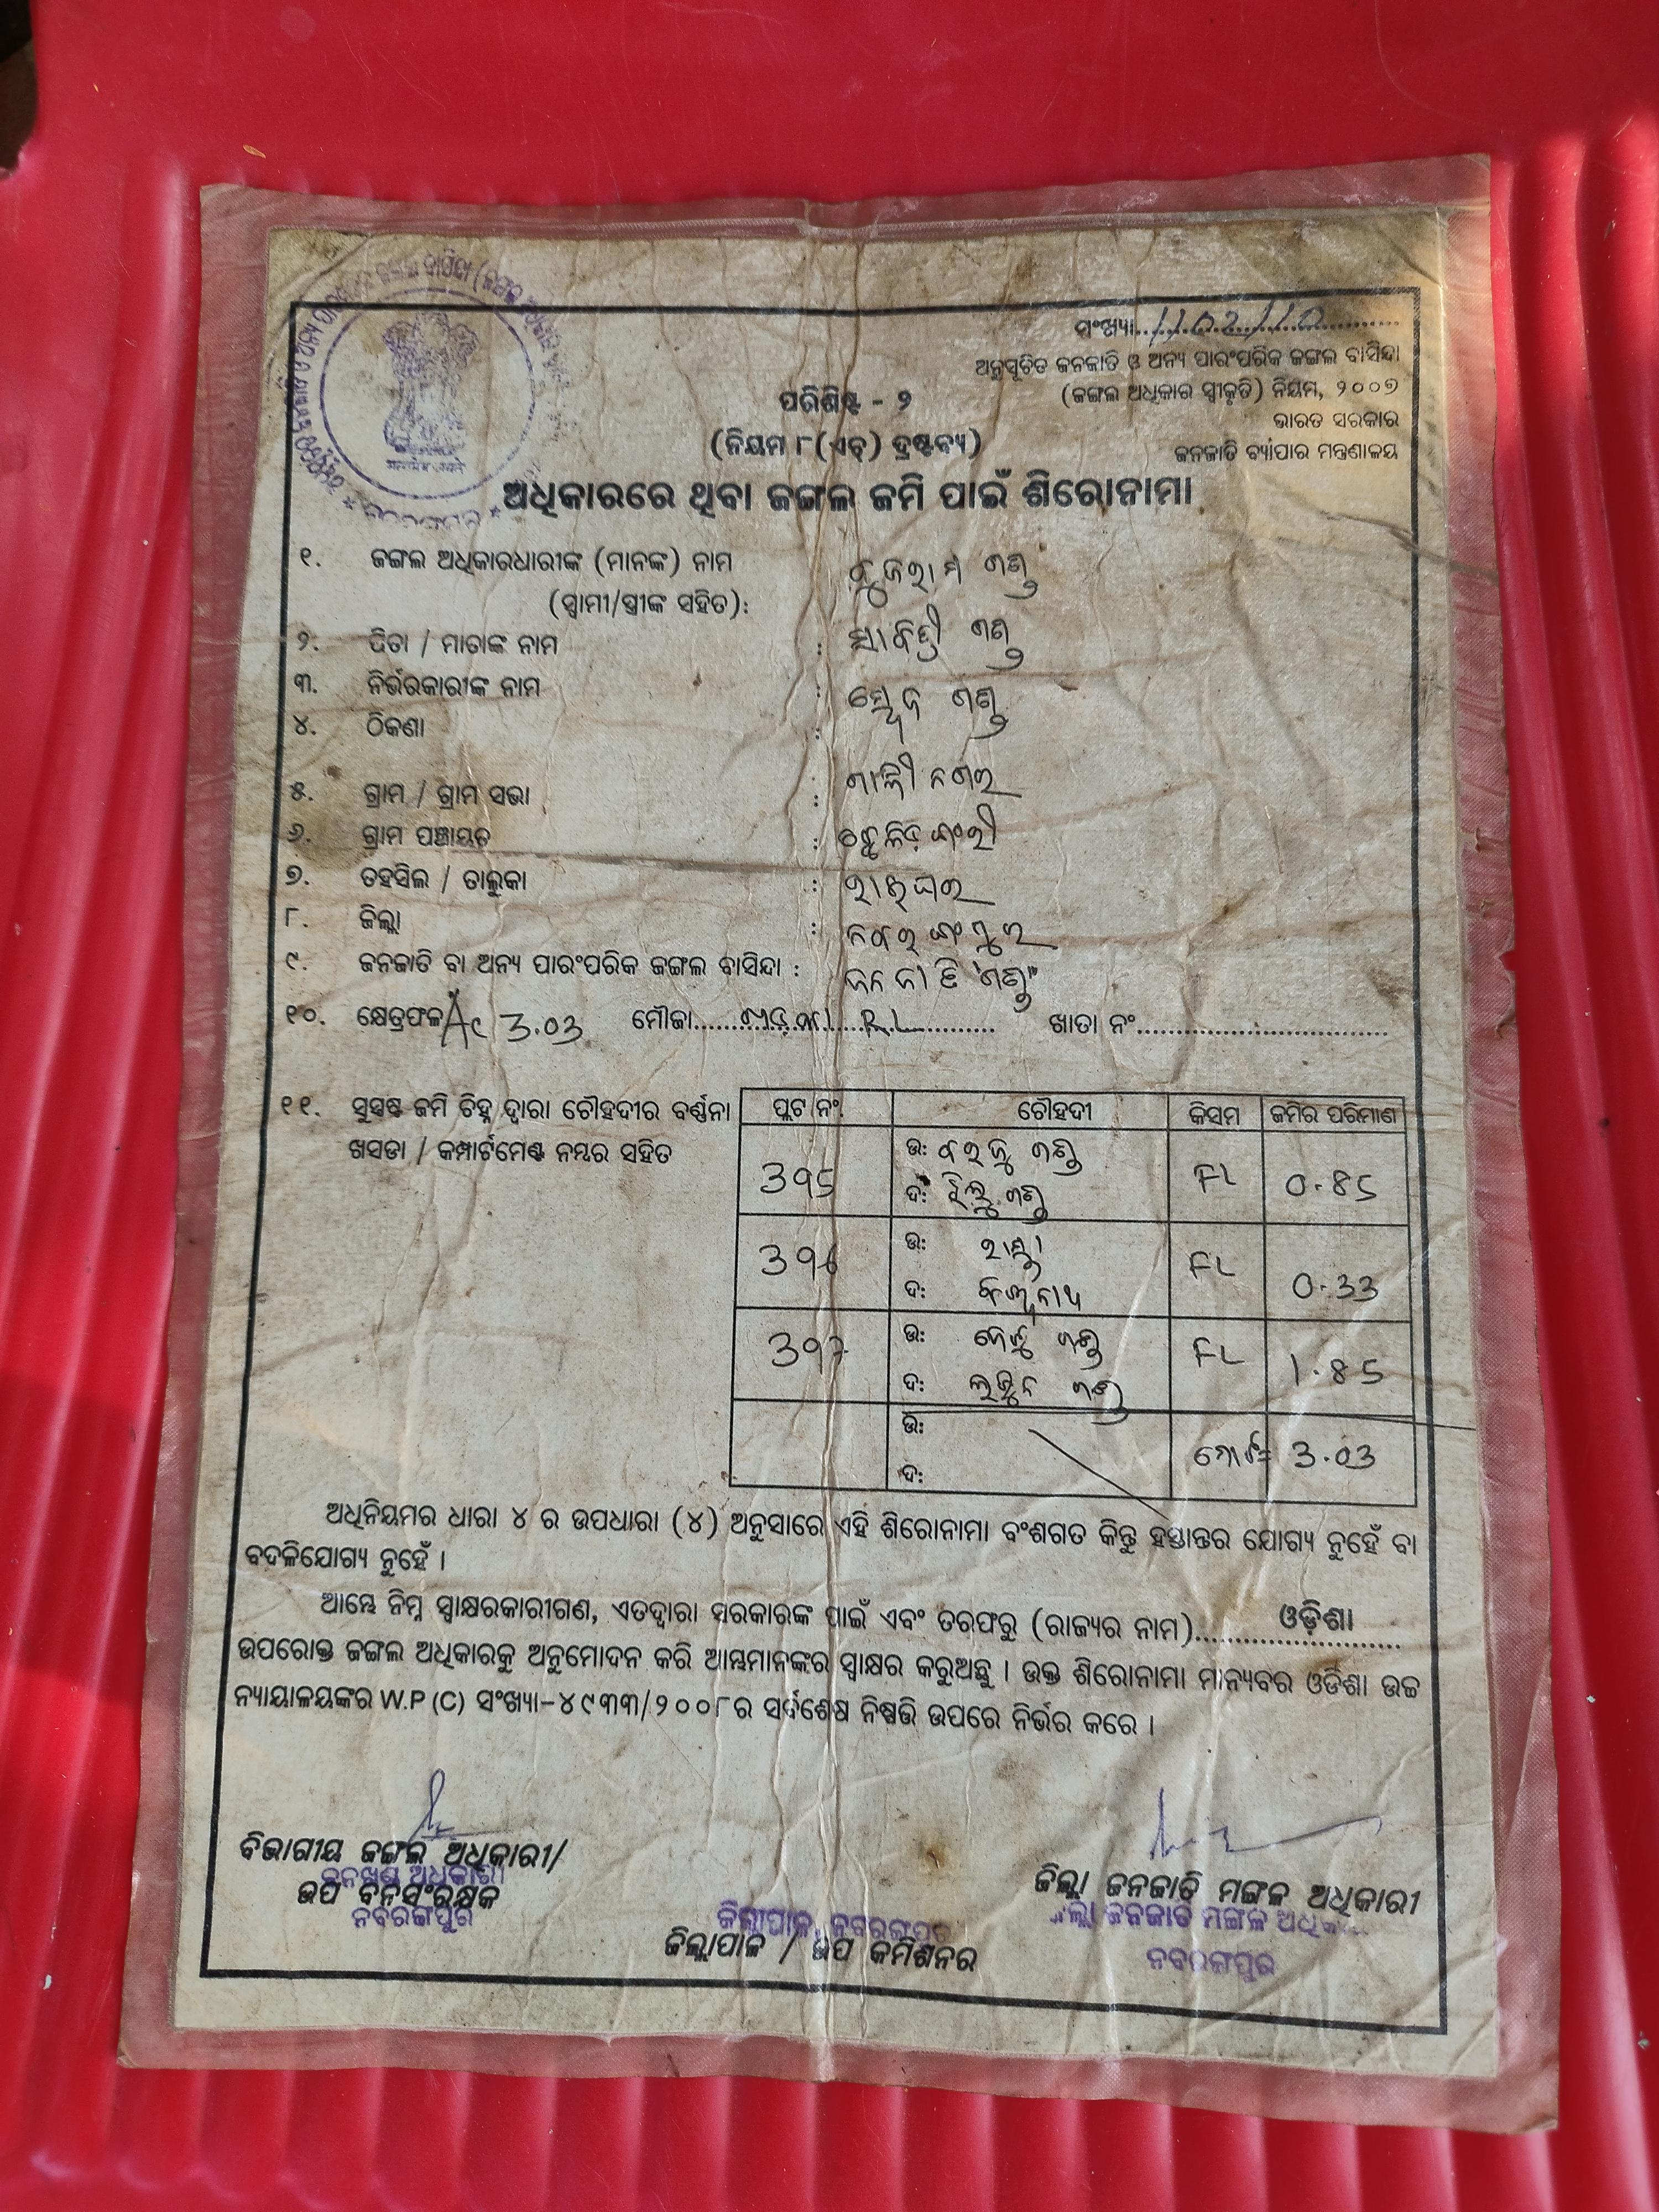 ସଂଖ୍ୟା..1102/10
ଅନୁସୂଚିତ ଜନଜାତି ଓ ଅନ୍ୟ ପାରଂପରିକ ଜଙ୍ଗଲ ବାସିନ୍ଦା
(ଜଙ୍ଗଲ ଅଧିକାର ସ୍ୱୀକୃତି) ନିୟମ, ୨୦୦୭
ଭାରତ ସରକାର
ଜନଜାତି ବ୍ୟାପାର ମନ୍ତ୍ରଣାଳୟ
ପରିଶିଷ୍ଟ - ୨
(ନିୟମ ୮(ଏଚ୍) ଦ୍ରଷ୍ଟବ୍ୟ)
ଅଧିକାରରେ ଥିବା ଜଙ୍ଗଲ ଜମି ପାଇଁ ଶିରୋନାମା
୧. ଜଙ୍ଗଲ ଅଧିକାରଧାରୀଙ୍କ (ମାନଙ୍କ) ନାମ
(ସ୍ୱାମୀ/ସ୍ତ୍ରୀଙ୍କ ସହିତ):
୨. ପିତା / ମାତାଙ୍କ ନାମ : ସାବିତ୍ରୀ ଗଣ୍ଡ
୩. ନିର୍ଭରକାରୀଙ୍କ ନାମ : ଗଣ୍ଡ
୪. ଠିକଣା :
୫. ଗ୍ରାମ / ଗ୍ରାମ ସଭା : ଗାନ୍ଧୀ ନଗର
୬. ଗ୍ରାମ ପଞ୍ଚାୟତ :
୭. ତହସିଲ / ତାଲୁକା : ରାଇଘର
୮. ଜିଲ୍ଲା : ନବରଙ୍ଗପୁର
୯. ଜନଜାତି ବା ଅନ୍ୟ ପାରଂପରିକ ଜଙ୍ଗଲ ବାସିନ୍ଦା : ଜନଜାତି "ଗଣ୍ଡ"
୧୦. କ୍ଷେତ୍ରଫଳ Ac 3.03 ମୌଜା.......... RL .......... ଖାତା ନଂ..............................
୧୧. ସୁସ୍ପଷ୍ଟ ଜମି ଚିହ୍ନ ଦ୍ୱାରା ଚୌହଦୀର ବର୍ଣ୍ଣନା
ଖସଡା / କମ୍ପାର୍ଟମେଣ୍ଟ ନମ୍ବର ସହିତ
ପ୍ଲଟ ନଂ. ଚୌହଦୀ କିସମ ଜମିର ପରିମାଣ
395 ଉ: ଗଣ୍ଡ FL 0.85
ଦ: ଗଣ୍ଡ
396 ଉ: ରାସ୍ତା FL 0.33
ଦ: ବିଶ୍ୱନାଥ
397 ଉ: ଗଣ୍ଡ FL 1.85
ଦ: ଗଣ୍ଡ
ଉ: ମୋଟ= 3.03
ଦ:
ଅଧିନିୟମର ଧାରା ୪ ର ଉପଧାରା (୪) ଅନୁସାରେ ଏହି ଶିରୋନାମା ବଂଶଗତ କିନ୍ତୁ ହସ୍ତାନ୍ତର ଯୋଗ୍ୟ ନୁହେଁ ବା
ବଦଳିଯୋଗ୍ୟ ନୁହେଁ ।
ଆମ୍ଭେ ନିମ୍ନ ସ୍ୱାକ୍ଷରକାରୀଗଣ, ଏତଦ୍ୱାରା ସରକାରଙ୍କ ପାଇଁ ଏବଂ ତରଫରୁ (ରାଜ୍ୟର ନାମ)..........ଓଡ଼ିଶା..........
ଉପରୋକ୍ତ ଜଙ୍ଗଲ ଅଧିକାରକୁ ଅନୁମୋଦନ କରି ଆମ୍ଭମାନଙ୍କର ସ୍ୱାକ୍ଷର କରୁଅଛୁ । ଉକ୍ତ ଶିରୋନାମା ମାନ୍ୟବର ଓଡିଶା ଉଚ୍ଚ
ନ୍ୟାୟାଳୟଙ୍କର W.P (C) ସଂଖ୍ୟା-୪୯୩୩/୨୦୦୮ର ସର୍ବଶେଷ ନିଷ୍ପତ୍ତି ଉପରେ ନିର୍ଭର କରେ ।
ବିଭାଗୀୟ ଜଙ୍ଗଲ ଅଧିକାରୀ/
ବନଖଣ୍ଡ ଅଧିକାରୀ
ଉପ ବନସଂରକ୍ଷକ
ନବରଙ୍ଗପୁର
ଜିଲ୍ଲାପାଳ, ନବରଙ୍ଗପୁର
ଜିଲ୍ଲାପାଳ / ଉପ କମିଶନର
ଜିଲ୍ଲା ଜନଜାତି ମଙ୍ଗଳ ଅଧିକାରୀ
ଜିଲ୍ଲା ଜନଜାତି ମଙ୍ଗଳ
ନବରଙ୍ଗପୁର